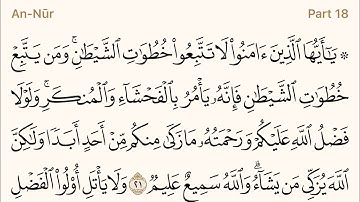 An-Nūr Part 18
۞ يَٰٓأَيُّهَا ٱلَّذِينَ ءَامَنُوا۟ لَا تَتَّبِعُوا۟ خُطُوَٰتِ ٱلشَّيْطَٰنِ ۚ وَمَن يَتَّبِعْ
خُطُوَٰتِ ٱلشَّيْطَٰنِ فَإِنَّهُۥ يَأْمُرُ بِٱلْفَحْشَآءِ وَٱلْمُنكَرِ ۚ وَلَوْلَا
فَضْلُ ٱللَّهِ عَلَيْكُمْ وَرَحْمَتُهُۥ مَا زَكَىٰ مِنكُم مِّنْ أَحَدٍ أَبَدًا وَلَٰكِنَّ
ٱللَّهَ يُزَكِّى مَن يَشَآءُ ۗ وَٱللَّهُ سَمِيعٌ عَلِيمٌ ٢١ وَلَا يَأْتَلِ أُو۟لُوا۟ ٱلْفَضْلِ